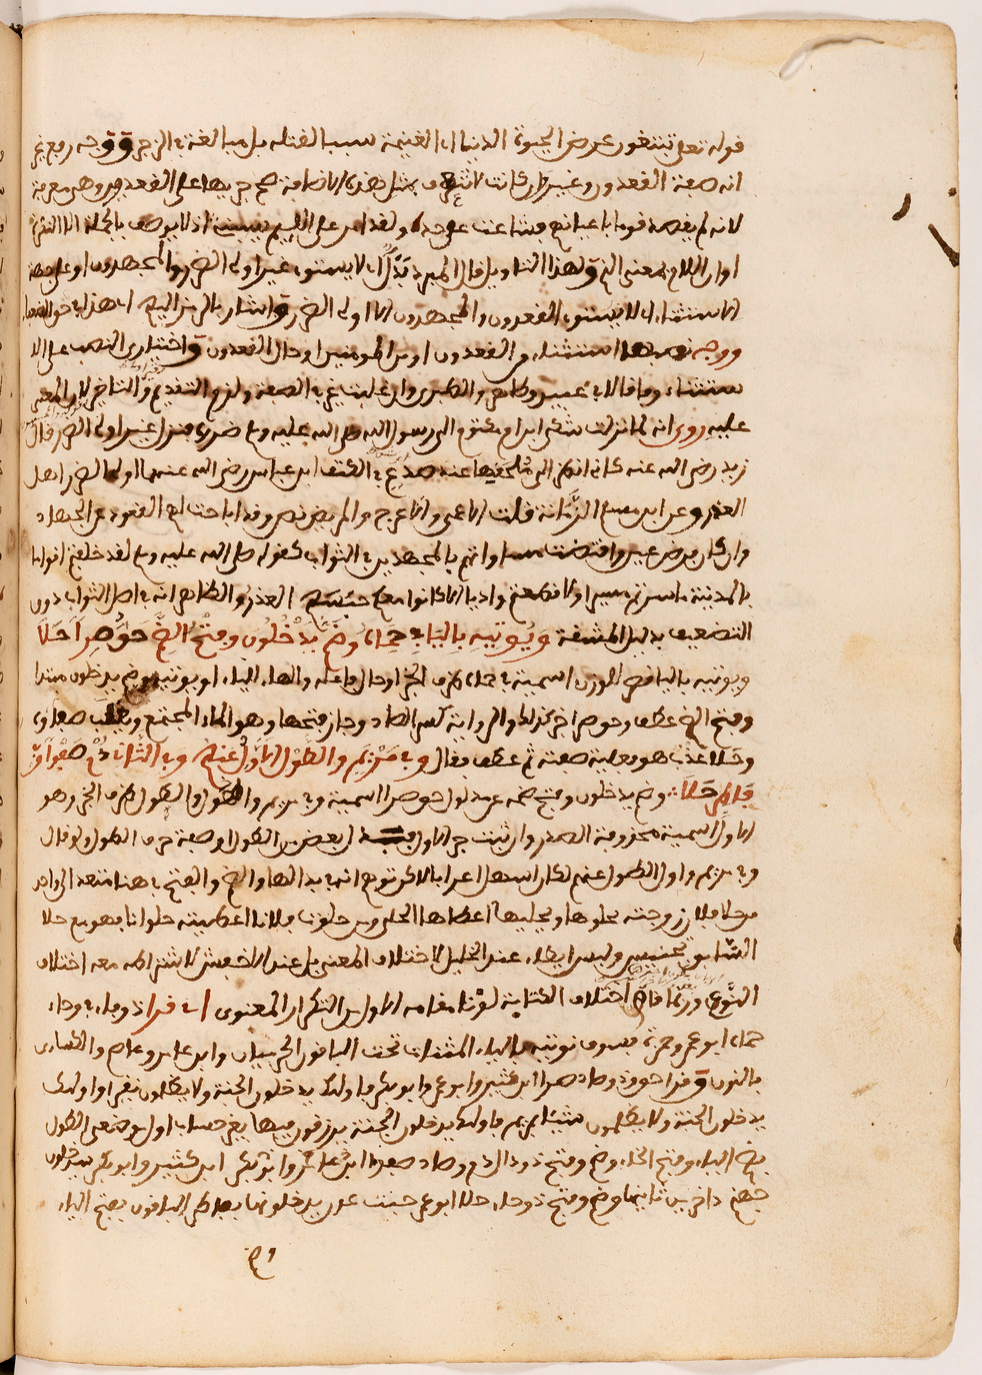 قوله تعلى تبتغون عرض الحيوة الدنيا اي الغنيمة سبب القتله بل مبالغة في الزجر ووجه رفع غير
انه صفة القعدون وغير وان كانت لا تتعرف بمثل هذه الاضافة صح جريها على القعدون وهي معرفة
لانه لم يقصد قوما باعيانهم ولقد امر على اللئيم يسبني اذ لا يوصف بالجملة الا النكرة
او ان اللام بمعنى الذي ولهذا التاويل قال المبرد بدل اي لا يستوى غير اولى الضرر والمجهدون او على جهة
الاستثناء اي لا يستوى القعدون والمجهدون الا اولى الضرر واشار بالرمز اليه اي هذا
ووجه نصبها استثناء من القعدون او من المومنين او حال القعدون واختيارى النصب على الا
ستثناء وفاقا لابي عبيد وطاهر والطبرى وان غلبت غير في الصفة ولزم التقديم والتاخير لان المعنى
عليه روى انه لما نزلت شكى ابن ام مكتوم الى رسول الله صلى الله عليه وسلم ضرره فنزل غير اولى الضرر قال
زيد رضى الله عنه كانى انظر الى ملحقها عند صدع في الكتف ابن عباس رضى الله عنهما اولى الضرر اهل
العذر وعن ابن الزمانة قلت الاعمى والاعرج والمريض نص وقد اباحت لهم القعود عن الجهاد
وان كان فرض عين واقتضت مساواتهم بالمجهدين في الثواب كقوله صلى الله عليه وسلم لقد خلفتم اقواما
بالمدينة ما سرتم مسيرا ولا قطعتم واديا الا كانوا معكم حبسهم العذر والظاهر انه في اصل الثواب دون
التضعيف بدليل المشقة ويوتيه باليا في حماه وضم يدخلون وفتح الضم حق صرا حلا
ويوتيه باليا فى الوزن اسمية في حماه ظرف الخبر او حال فاعله والهاء الياء او يوتيه وضم يدخلون مبتدا
وفتح الضم عطف وحق صر اخر كذلك والرواية كسر الصاد وجاز فتحها وهو الماء المجتمع
وحلا عذب هو فعلية صفته ثم عطف فقال وفي مريم والطول الاول عنهم وفي الثان دم صفوا وفي
فاطر حلا وضم يدخلون وفتح ضمه عن مدلول حق صرا اسمية وفي مريم والطول والطول ظرف الخبر وهو
الاول اسمية محذوفة الصدر وان ثبت جر الاول بعض من الطول او صفة حرف الطول ولو قال
وفي مريم واول الطول عنهم لكان اسهل اعرابا لاكن توهم انه في بدا الها والضم والفتح في هنا متعد الى واحد
من حلا فلان زوجته يحلوها ويحليها اعطاها الحلى ومن حلوت فلانا اعطيته حلوانا فهو مع حلا
السابق تجنيس وليس ايطاء عند الخليل لاختلاف المعنى بل عند الاخفش لاشتراطه معه اختلاف
النوع وربما قام اختلاف الكتابة لوقتا مقامه الاول من التكرار المعنوى اي قرا ذو فاء في وحاء
حماه ابو عمرو وحمزة فسوف نوتيه بالياء المثناة تحت الباقون الحرميان وابن عامر وعاصم والكساى
بالنون وقرا حق وذو صاد صرا ابن كثير وابو عمرو وابو بكر فاوليك يدخلون الجنة ولا يظلمون نقيرا واوليك
يدخلون الجنة ولا يظلمون شيئا بمريم فاوليك يدخلون الجنة يرزقون فيها بغير حساب اول موضعى الطول
بضم الياء وفتح الخاء وضم وفتح ذو دال دم وصاد صفوا ابن كثير وابو بكر سيدخلون
جهنم داخرين ثانيها وضم وفتح ذو حاء حلا ابو عمرو جنت عدن يدخلونها بفاطر الباقون بفتح الياء